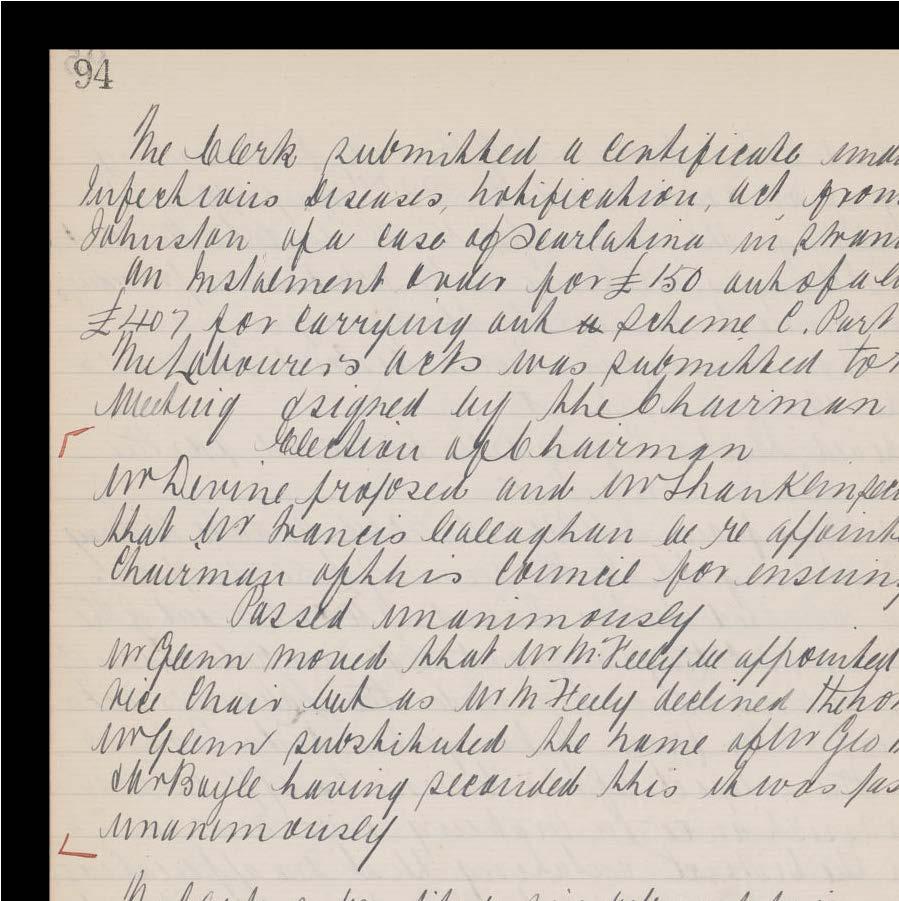 94
The Clerk submitted a certificate
Infectious Diseases, Notification, act from
Johnston of a case of Scarlatina in
An Instalment order for £150 out of a
£407 for carrying out a scheme C. Part
The Labourers acts was submitted to
Meeting & signed by the Chairman
Election of Chairman
Mr Devine proposed and Mr Shanklin
that Mr Francis Callaghan be re
Chairman of this Council for ensuing
Passed unanimously
Mr Glenn moved that Mr McFeely be appointed
vice Chair but as Mr McFeely declined the
Mr Glenn substituted the name of Mr Geo
& Mr Boyle having seconded this it was
unanimously